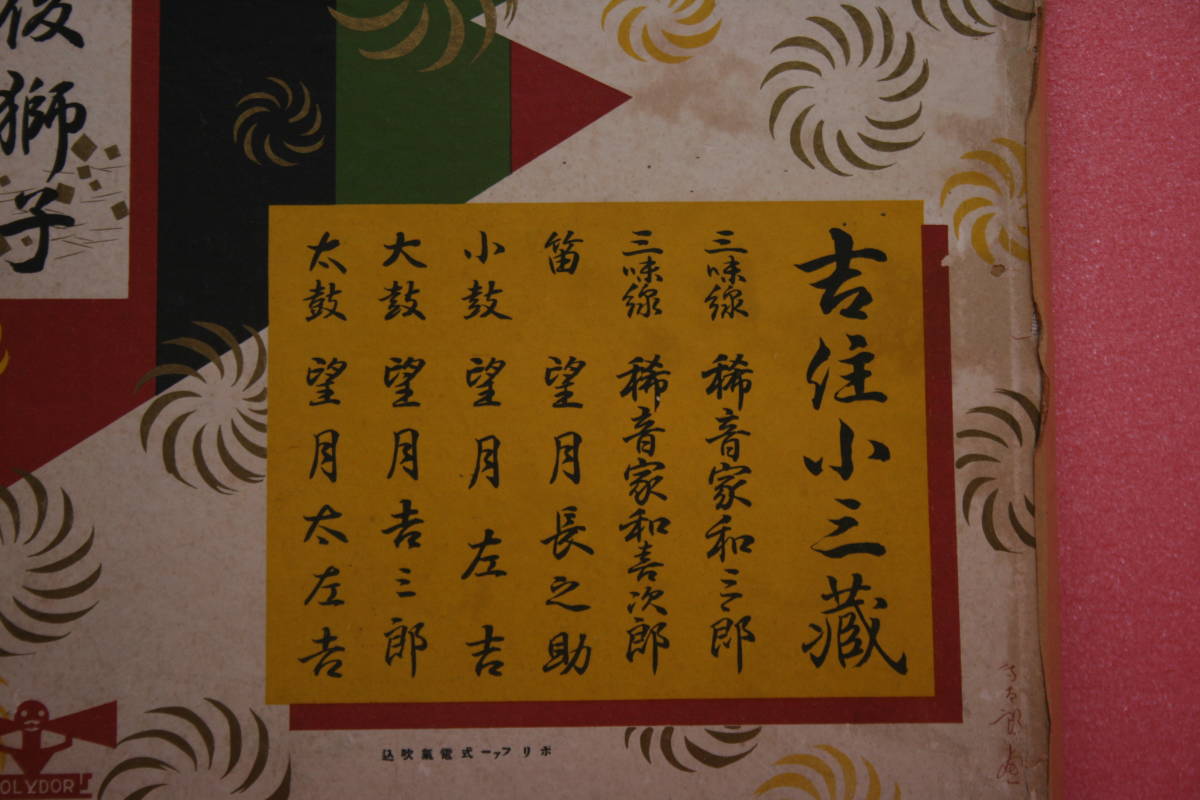 吉住小三蔵
三味線 稀音家和三郎
三味線 稀音家和喜次郎
笛 望月長之助
小鼓 望月左吉
大鼓 望月吉三郎
太鼓 望月太左吉
獅子
ポリファー式電氣吹込
OLYDOR'S